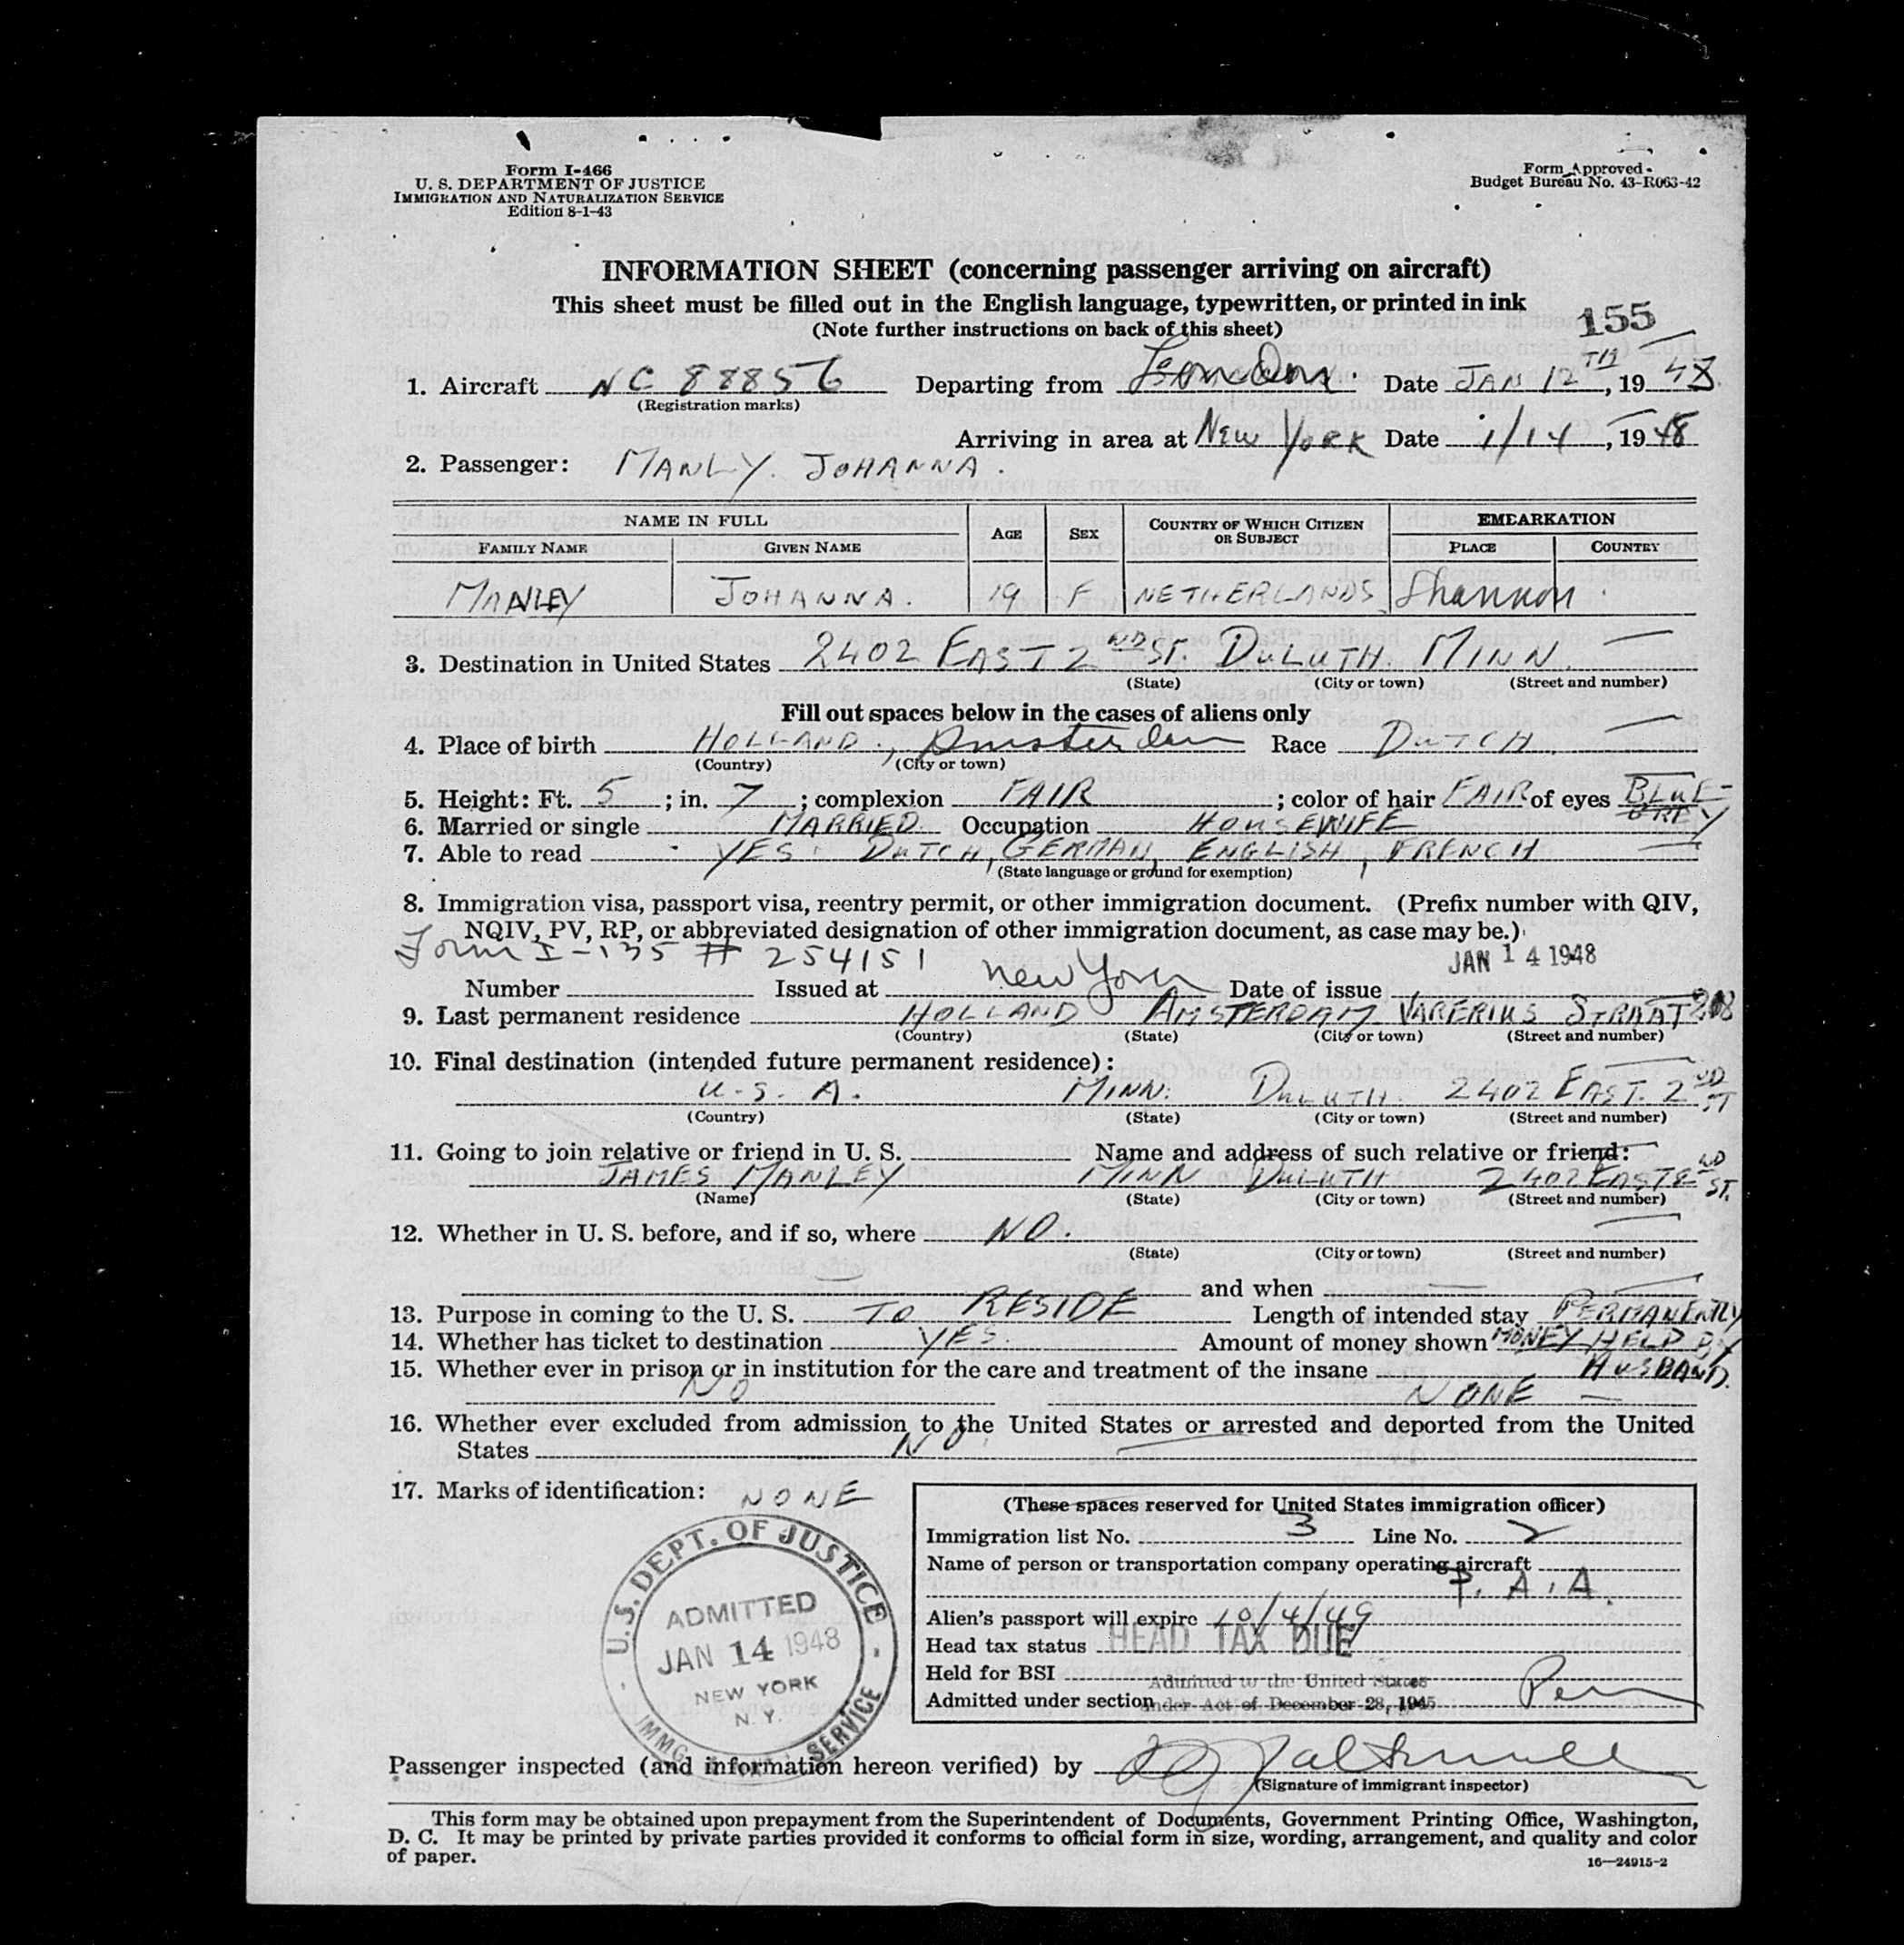 Form I-466
U. S. DEPARTMENT OF JUSTICE
IMMIGRATION AND NATURALIZATION SERVICE
Edition 8-1-43
Form Approved
Budget Bureau No. 43-R063-42
INFORMATION SHEET (concerning passenger arriving on aircraft)
This sheet must be filled out in the English language, typewritten, or printed in ink
(Note further instructions on back of this sheet)
155
1. Aircraft NC 88856 Departing from London. Date JAN 12TH, 1948
(Registration marks)
Arriving in area at NEW YORK Date 1/14, 1948
2. Passenger: MANLY. JOHANNA.
NAME IN FULL AGE SEX COUNTRY OF WHICH CITIZEN OR SUBJECT EMBARKATION
FAMILY NAME GIVEN NAME PLACE COUNTRY
MANLEY JOHANNA. 19 F NETHERLANDS Shannon.
3. Destination in United States 2402 EAST 2ND ST. DULUTH. MINN.
(State) (City or town) (Street and number)
Fill out spaces below in the cases of aliens only
4. Place of birth HOLLAND, Amsterdam Race DUTCH.
(Country) (City or town)
5. Height: Ft. 5; in. 7; complexion FAIR; color of hair FAIR of eyes BLUE-GREY
6. Married or single MARRIED. Occupation HOUSEWIFE
7. Able to read YES. DUTCH, GERMAN, ENGLISH, FRENCH
(State language or ground for exemption)
8. Immigration visa, passport visa, reentry permit, or other immigration document. (Prefix number with QIV,
NQIV, PV, RP, or abbreviated designation of other immigration document, as case may be.)
Form I-135 # 254151 New York JAN 14 1948
Number Issued at Date of issue
9. Last permanent residence HOLLAND AMSTERDAM VARERIUS STRAAT
(Country) (State) (City or town) (Street and number)
10. Final destination (intended future permanent residence):
U.S.A. MINN: DULUTH. 2402 EAST. 2ND ST
(Country) (State) (City or town) (Street and number)
11. Going to join relative or friend in U. S. Name and address of such relative or friend:
JAMES MANLEY MINN DULUTH 2402 EAST 2ND ST.
(Name) (State) (City or town) (Street and number)
12. Whether in U. S. before, and if so, where NO.
(State) (City or town) (Street and number)
and when
13. Purpose in coming to the U. S. TO RESIDE Length of intended stay PERMANENTLY
14. Whether has ticket to destination YES. Amount of money shown MONEY HELD BY HUSBAND.
15. Whether ever in prison or in institution for the care and treatment of the insane
NO NONE
16. Whether ever excluded from admission to the United States or arrested and deported from the United
States NO.
17. Marks of identification: NONE
(These spaces reserved for United States immigration officer)
Immigration list No. 3 Line No. 2
Name of person or transportation company operating aircraft
P.A.A.
Alien's passport will expire 10/4/49
Head tax status HEAD TAX DUE
Held for BSI
Admitted to the United States
Admitted under section under Act of December 28, 1945
U.S. DEPT. OF JUSTICE
ADMITTED
JAN 14 1948
NEW YORK
N.Y.
IMMG. SERVICE
Passenger inspected (and information hereon verified) by
(Signature of immigrant inspector)
This form may be obtained upon prepayment from the Superintendent of Documents, Government Printing Office, Washington,
D. C. It may be printed by private parties provided it conforms to official form in size, wording, arrangement, and quality and color
of paper.
16—24915-2